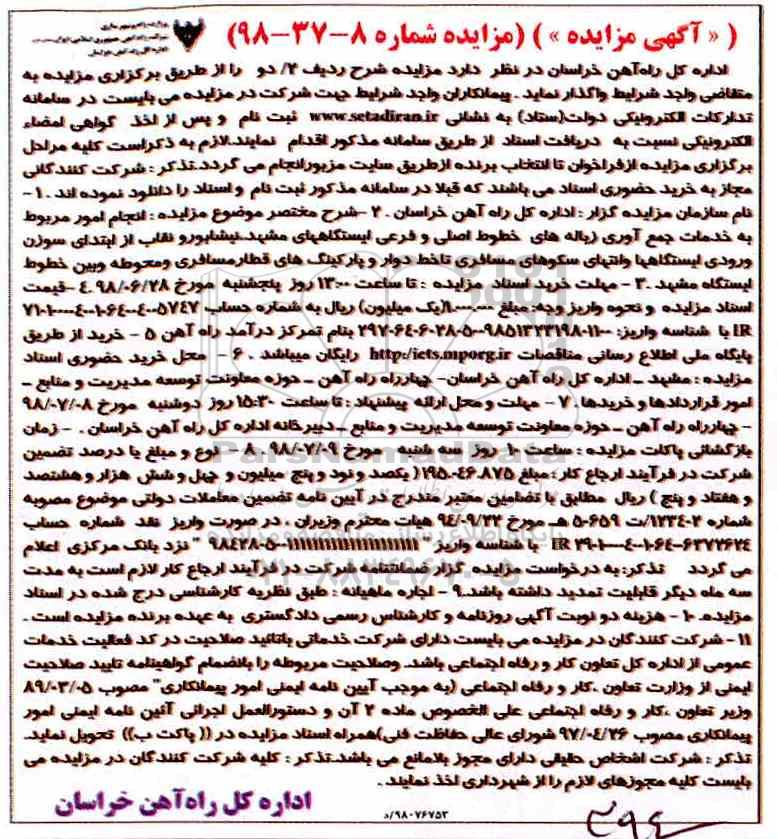 وزارت راه و شهرسازی
شرکت راه آهن جمهوری اسلامی ایران
اداره کل راه آهن خراسان
( « آگهی مزایده » ) (مزایده شماره ۸-۳۷-۹۸)
اداره کل راه‌آهن خراسان در نظر دارد مزایده شرح ردیف ۲/ دو را از طریق برگزاری مزایده به
متقاضی واجد شرایط واگذار نماید . پیمانکاران واجد شرایط جهت شرکت در مزایده می بایست در سامانه
تدارکات الکترونیکی دولت(ستاد) به نشانی www.setadiran.ir ثبت نام و پس از اخذ گواهی امضاء
الکترونیکی نسبت به دریافت اسناد از طریق سامانه مذکور اقدام نمایند.لازم به ذکراست کلیه مراحل
برگزاری مزایده ازفراخوان تا انتخاب برنده ازطریق سایت مزبورانجام می گردد.تذکر : شرکت کنندگانی
مجاز به خرید حضوری اسناد می باشند که قبلا در سامانه مذکور ثبت نام و اسناد را دانلود نموده اند . ۱-
نام سازمان مزایده گزار : اداره کل راه آهن خراسان . ۲ -شرح مختصر موضوع مزایده : انجام امور مربوط
به خدمات جمع آوری زباله های خطوط اصلی و فرعی ایستگاههای مشهد.نیشابورو نقاب از ابتدای سوزن
ورودی ایستگاهها وانتهای سکوهای مسافری تاخط دوار و پارکینگ های قطارمسافری ومحوطه وبین خطوط
ایستگاه مشهد .۳ - مهلت خرید اسناد مزایده : تا ساعت ۱۳:۰۰ روز پنجشنبه مورخ ۹۸/۰۶/۲۸ .۴ -قیمت
اسناد مزایده و نحوه واریز وجه مبلغ ۱.۰۰۰.۰۰۰(یک میلیون) ریال به شماره حساب
IR با شناسه واریز: بنام تمرکز درآمد راه آهن ۵ - خرید از طریق
پایگاه ملی اطلاع رسانی مناقصات http:/iets.mporg.ir رایگان میباشد . ۶ - محل خرید حضوری اسناد
مزایده : مشهد ـ اداره کل راه آهن خراسان- چهارراه راه آهن ـ حوزه معاونت توسعه مدیریت و منابع ـ
امور قراردادها و خریدها . ۷ - مهلت و محل ارائه پیشنهاد : تا ساعت ۱۵:۳۰ روز دوشنبه مورخ ۹۸/۰۷/۰۸
- چهارراه راه آهن ـ حوزه معاونت توسعه مدیریت و منابع ـ دبیرخانه اداره کل راه آهن خراسان . - زمان
بازگشائی پاکات مزایده : ساعت ۱۰ روز سه شنبه مورخ ۹۸/۰۷/۰۹ . ۸ - نوع و مبلغ یا درصد تضمین
شرکت در فرآیند ارجاع کار : مبلغ ۱۹۵.۰۴۶.۸۷۵( یکصد و نود و پنج میلیون و چهل و شش هزار و هشتصد
و هفتاد و پنج ) ریال مطابق با تضامین معتبر مندرج در آیین نامه تضمین معاملات دولتی موضوع مصوبه
شماره ۱۲۳۴۰۲/ت ۵۰۶۵۹ هـ مورخ ۹۴/۰۹/۲۲ هیات محترم وزیران . در صورت واریز نقد شماره حساب
IR با شناسه واریز نزد بانک مرکزی اعلام
می گردد تذکر: به درخواست مزایده گزار ضمانتنامه شرکت در فرآیند ارجاع کار لازم است به مدت
سه ماه دیگر قابلیت تمدید داشته باشد.۹ - اجاره ماهیانه : طبق نظریه کارشناسی درج شده در اسناد
مزایده. ۱۰ - هزینه دو نوبت آگهی روزنامه و کارشناس رسمی دادگستری به عهده برنده مزایده است .
۱۱ - شرکت کنندگان در مزایده می بایست دارای شرکت خدماتی باتائید صلاحیت در کد فعالیت خدمات
عمومی از اداره کل تعاون کار و رفاه اجتماعی باشد. وصلاحیت مربوطه را بانضمام گواهینامه تایید صلاحیت
ایمنی از وزارت تعاون ،کار و رفاه اجتماعی (به موجب آیین نامه ایمنی امور پیمانکاری" مصوب ۸۹/۰۳/۰۵
وزیر تعاون ،کار و رفاه اجتماعی علی الخصوص ماده ۲ آن و دستورالعمل اجرائی آئین نامه ایمنی امور
پیمانکاری مصوب ۹۷/۰۴/۲۶ شورای عالی حفاظت فنی)همراه اسناد مزایده در (( پاکت ب)) تحویل نماید.
تذکر : شرکت اشخاص حقیقی دارای مجوز بلامانع می باشد.تذکر : کلیه شرکت کنندگان در مزایده می
بایست کلیه مجوزهای لازم را از شهرداری اخذ نمایند .
اداره کل راه‌آهن خراسان
۹۸۰۷۶۷۵۳/د
ParsNamadData
۰۲۱-۸۸۳۴۹۶۷۰-۵